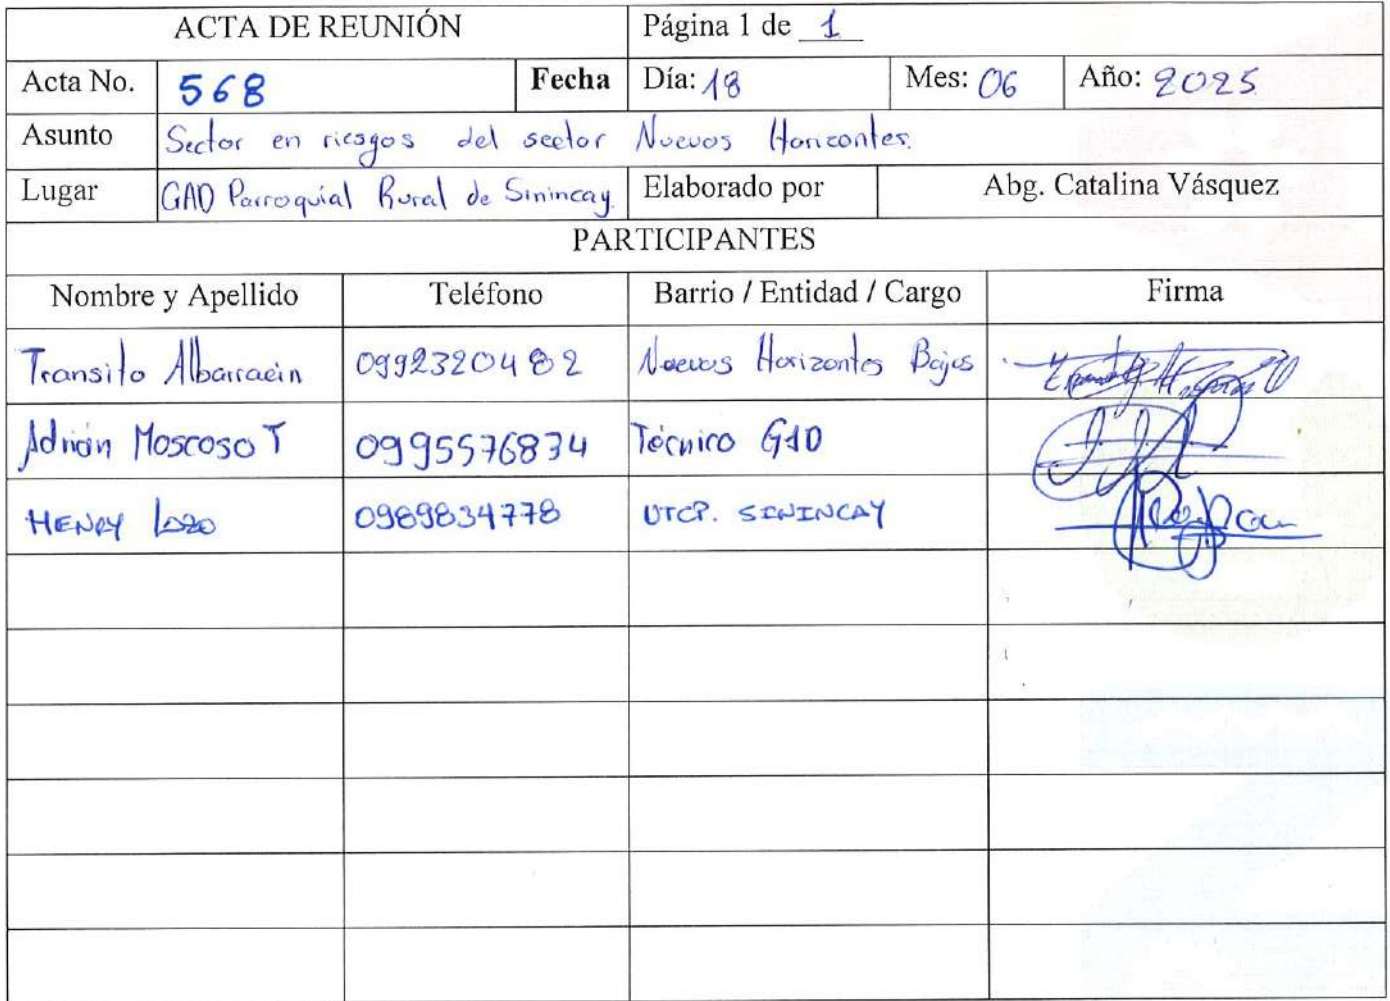 ACTA DE REUNIÓN Página 1 de 1
Acta No. 568 Fecha Día: 18 Mes: 06 Año: 2025
Asunto Sector en riesgos del sector Nuevos Horizontes.
Lugar GAD Parroquial Rural de Sinincay. Elaborado por Abg. Catalina Vásquez
PARTICIPANTES
Nombre y Apellido Teléfono Barrio / Entidad / Cargo Firma
Transito Albarracin 0992320482 Nuevos Horizontes Bajos
Adrián Moscoso T 0995576834 Técnico GAD
HENRY LAZO 0989834778 UTCP. SININCAY